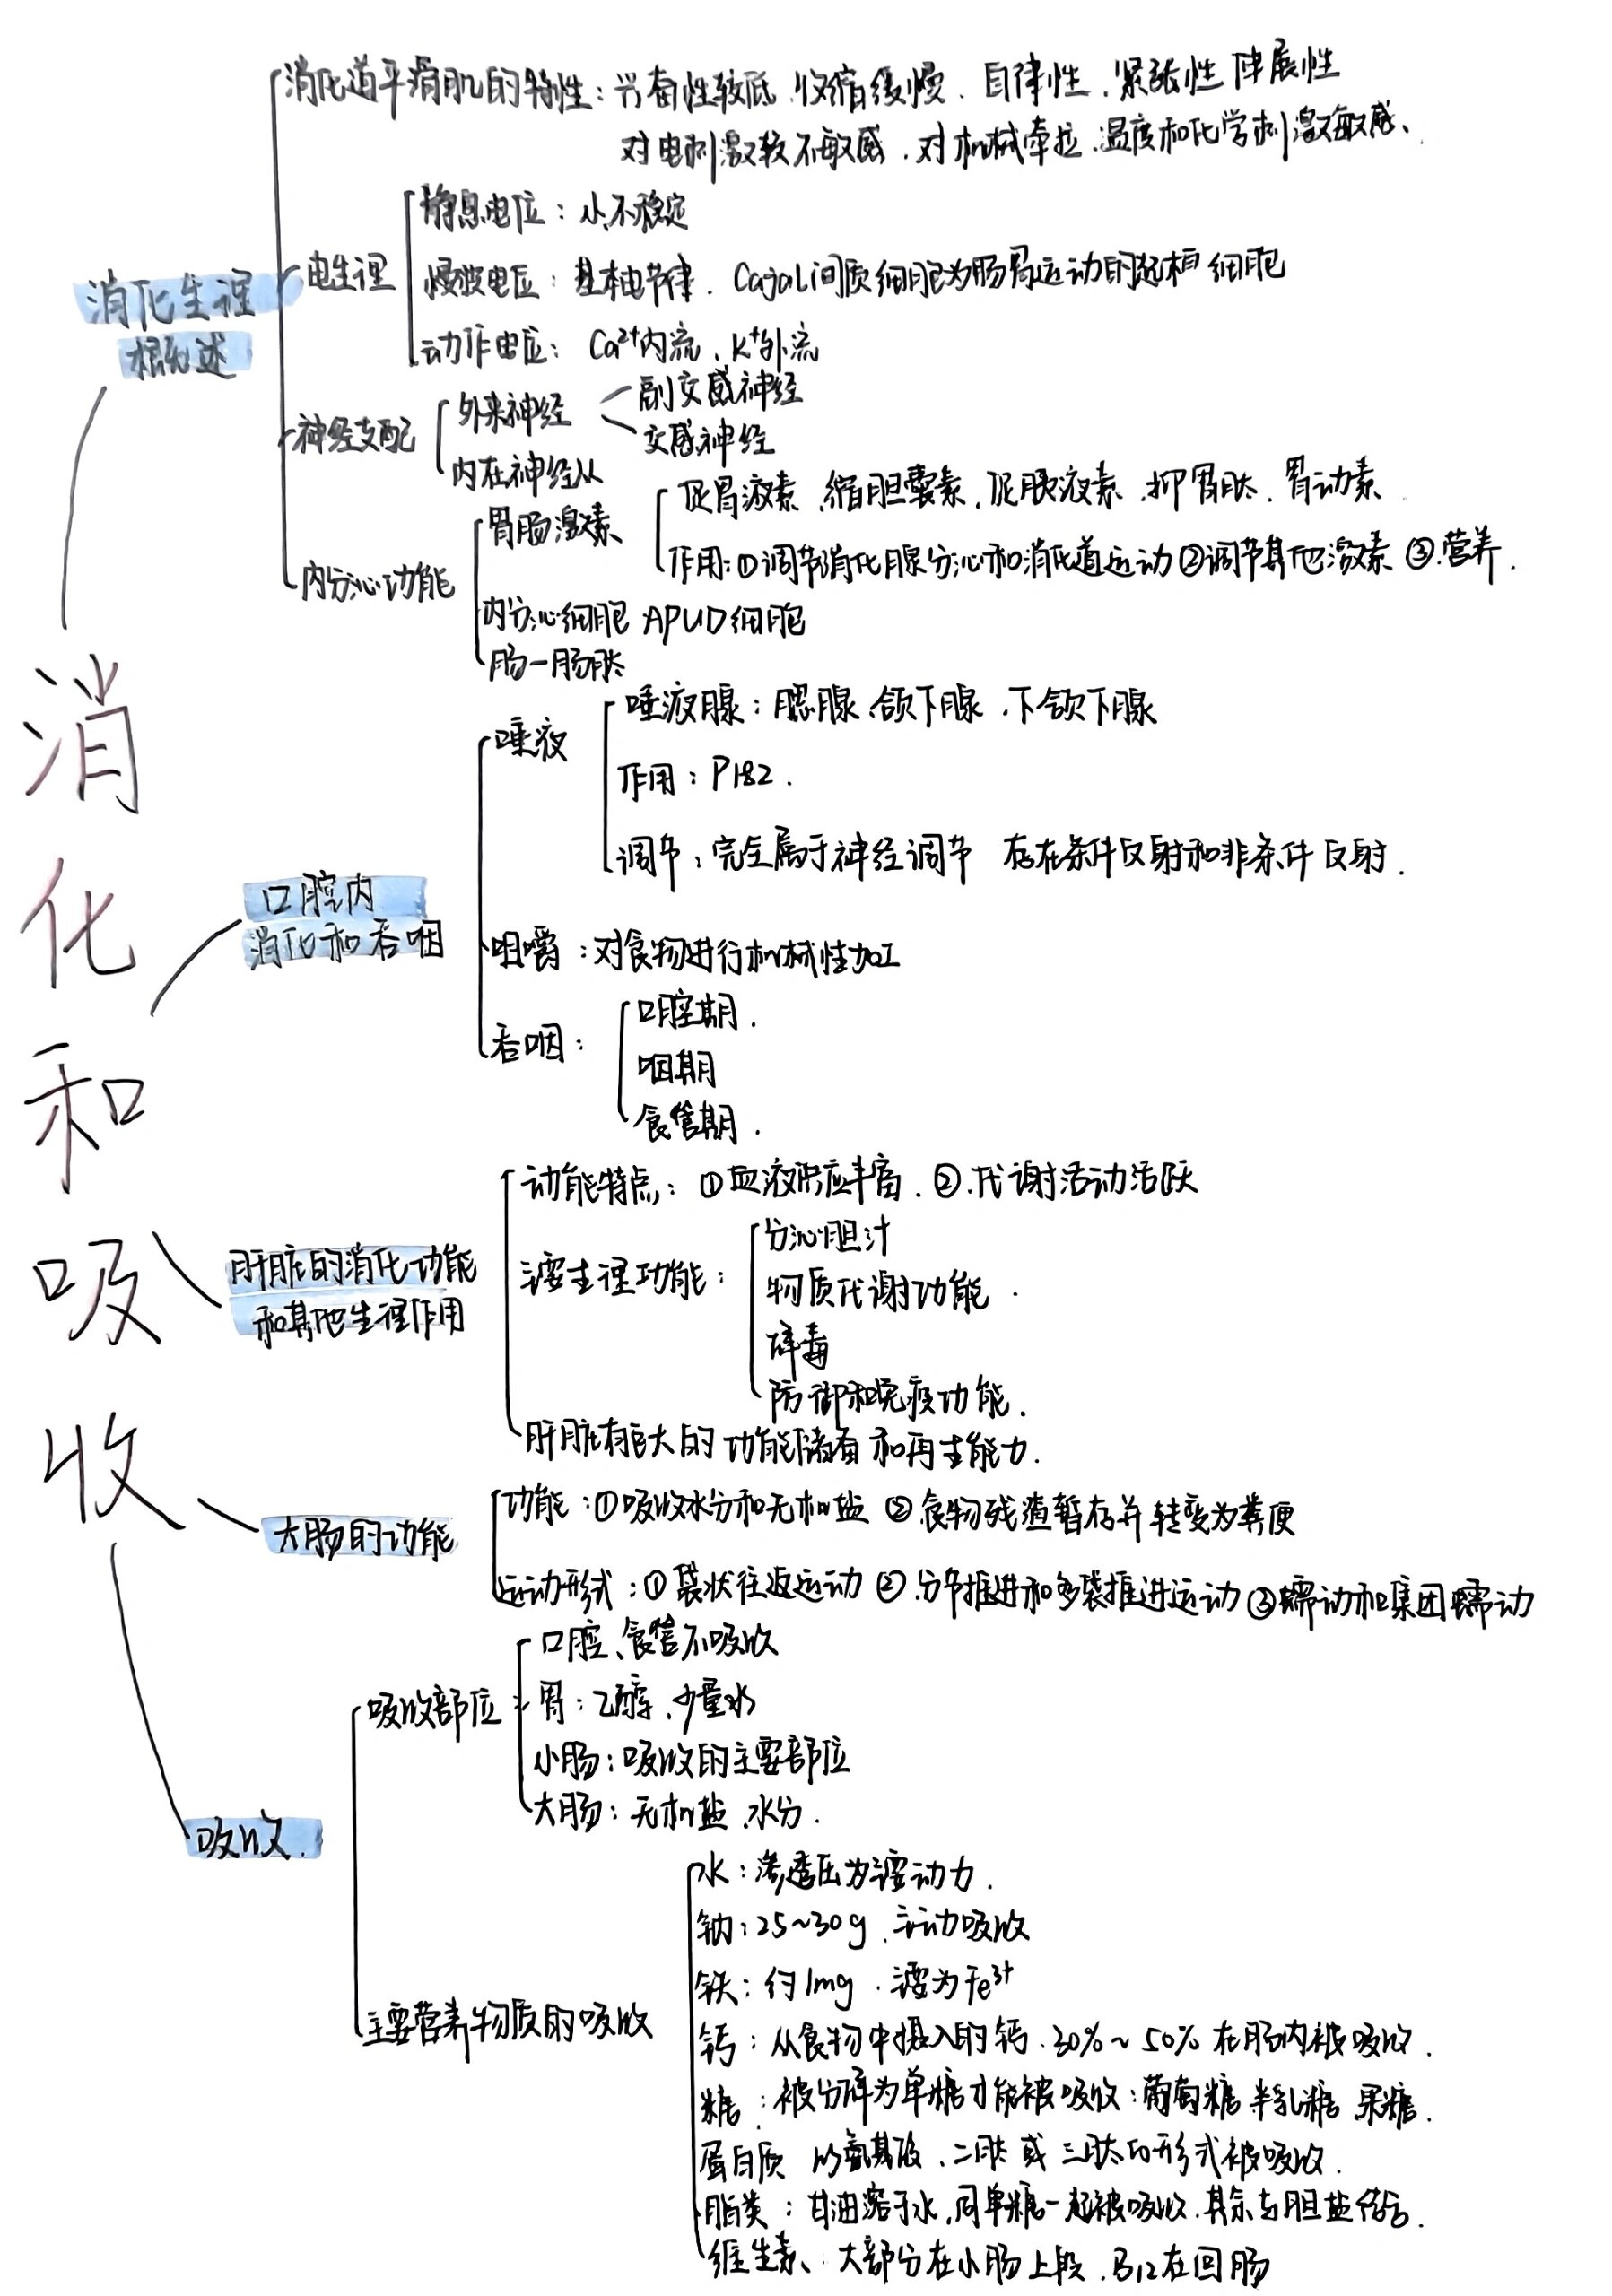 消化和吸收
消化生理
概述
消化道平滑肌的特性：兴奋性较低、收缩缓慢、自律性、紧张性 伸展性
对电刺激较不敏感、对机械牵拉、温度和化学刺激敏感、
电生理
静息电位：小、不稳定
慢波电位：基本电节律．Cajal间质细胞为肠胃运动的起植细胞
动作电位：Ca²⁺内流、K⁺外流
神经支配
外来神经
副交感神经
交感神经
内在神经从
内分泌功能
胃肠激素
促胃液素、缩胆囊素、促胰液素、抑胃肽、胃动素
作用：①调节消化腺分泌和消化道运动 ②调节其他激素 ③.营养．
内分泌细胞 APUD细胞
肠一肠肽
口腔内
消化和吞咽
唾液
唾液腺：腮腺、颌下腺、下颌下腺
作用：P182．
调节：完全属于神经调节 存在条件反射和非条件反射．
咀嚼：对食物进行机械性加工
吞咽：
口腔期．
咽期
食管期．
肝脏的消化功能
和其他生理作用
功能特点：①血液供应丰富．②.代谢活动活跃
主要生理功能：
分泌胆汁
物质代谢功能．
解毒
防御和免疫功能．
肝脏有巨大的功能储备和再生能力．
大肠的功能
功能：①吸收水分和无机盐 ②食物残渣暂存并转变为粪便
运动形式：①袋状往返运动 ②.分节推进和多袋推进运动 ③蠕动和集团蠕动
吸收．
吸收部位：
口腔、食管不吸收
胃：乙醇、少量水
小肠：吸收的主要部位
大肠：无机盐、水分．
主要营养物质的吸收
水：渗透压为主要动力．
钠：25~30g、主动吸收
铁：约1mg．主要为Fe³⁺
钙：从食物中摄入的钙．30%~50%在肠内被吸收．
糖：被分解为单糖才能被吸收：葡萄糖 半乳糖 果糖．
蛋白质 以氨基酸、二肽或三肽的形式被吸收．
脂类：甘油溶于水，同单糖一起被吸收．其余与胆盐结合．
维生素、大部分在小肠上段．B12在回肠